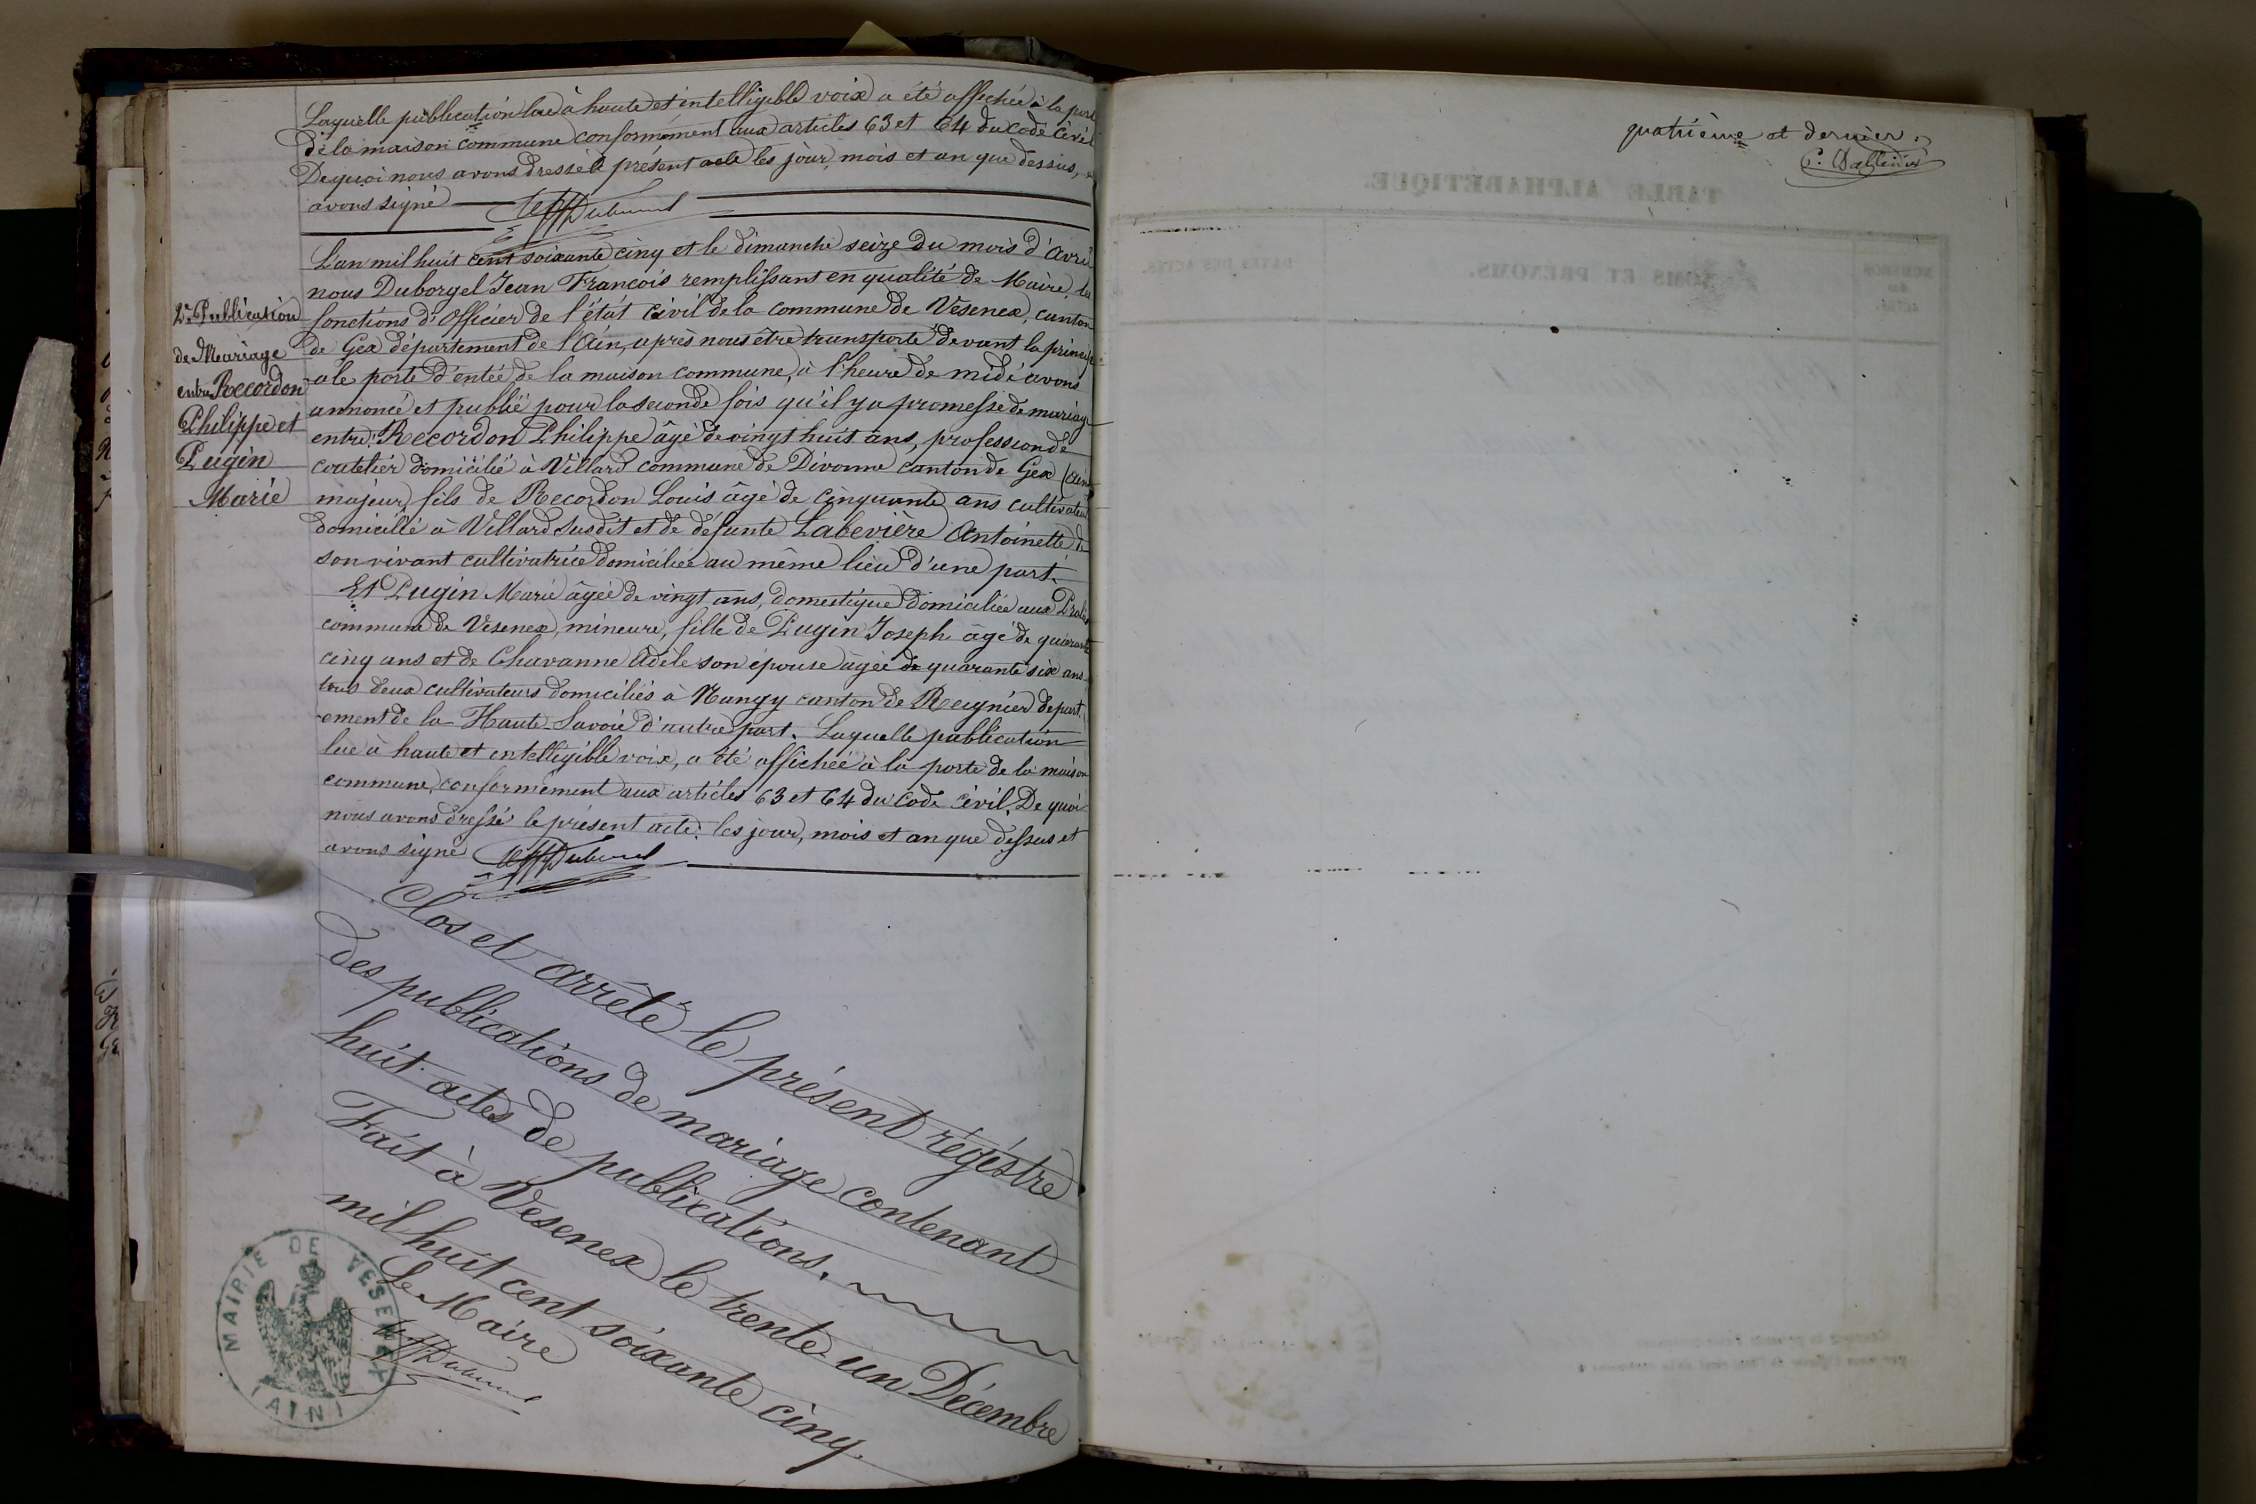 Laquelle publication lue à haute et intelligible voix a été affichée à la porte
de la maison commune conformément aux articles 63 et 64 du code civil
De quoi nous avons dressé le présent acte les jour, mois et an que dessus, et
avons signé
L'an mil huit cent soixante cinq et le dimanche seize du mois d'Avril
nous Duborgel Jean François remplissant en qualité de Maire, les
fonctions d'Officier de l'état civil de la commune de Vesenex, canton
de Gex département de l'Ain, après nous être transporté devant la princip
ale porte d'entée de la maison commune, à l'heure de midi avons
annoncé et publié pour la seconde fois qu'il y a promesse de mariage
entre: Recordon Philippe âgé de vingt huit ans, profession de
coutelier domicilié à Villard commune de Divonne canton de Gex (Ain)
majeur, fils de Recordon Louis âgé de cinquante ans cultivateur
domicilié à Villard susdit et de défunte Labevière Antoinette de
son vivant cultivatrice domiciliée au même lieu d'une part.
Et Pugin Marie âgée de vingt ans, domestique domiciliée aux
commune de Vesenex, mineure, fille de Pugin Joseph âgé de quarante
cinq ans et de Chavanne Adèle son épouse âgée de quarante six ans
tous deux cultivateurs domiciliés à Nangy canton de Reignier départ
ement de la Haute-Savoie d'autre part. Laquelle publication
lue à haute et intelligible voix, a été affichée à la porte de la maison
commune, conformément aux articles 63 et 64 du code civil. De quoi
nous avons dressé le présent acte, les jour, mois et an que dessus et
avons signé
2e Publication
de Mariage
entre Recordon
Philippe et
Pugin
Marie
Clos et arrêté le présent régistre
des publications de mariage contenant
huit actes de publications.
Fait à Vesenex le trente un Décembre
mil huit cent soixante cinq.
Le Maire
MAIRIE DE VESENEX
(AIN)
quatrième et dernier.
TABLE ALPHABÉTIQUE.
NUMÉROS
des
ACTES.
NOMS ET PRÉNOMS.
DATES DES ACTES.